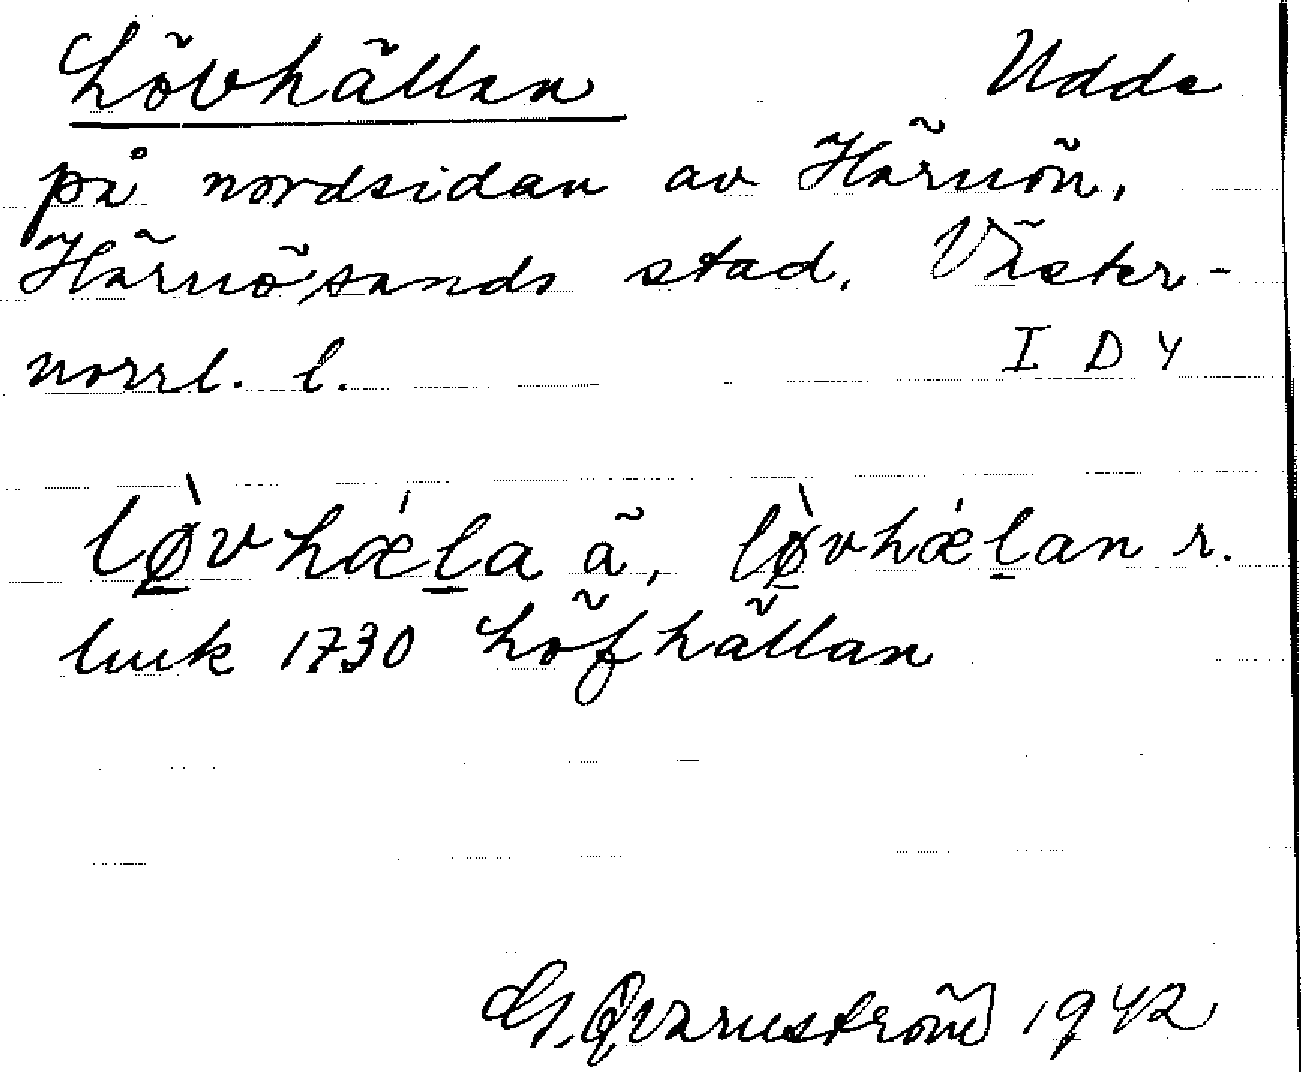 Lövhällan Udde
på nordsidan av Härnön,
Härnösands stad, Väster-
norrl. l. I D 4
lø̠̀vhǽl̠a ä, lø̠̀vhǽl̠an r.
lmk 1730 Löfhällan
G. Qvarnström 1942